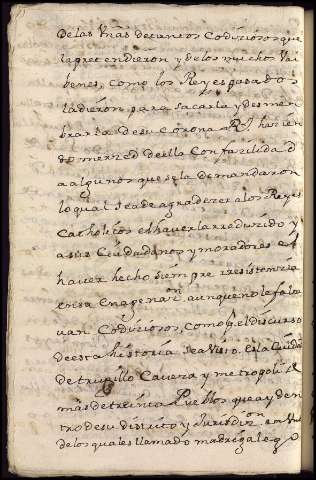 De las Uñas de tantos Codiziosos que
la pretendieron y de los muchos Vai
benes, como los Reyes pasados
la dieron para sacarla y desmen
brarla de su Corona Rl. haziēn
do merzed de ella Con fazilidad
a algunos que se la demandaron
lo qual se a de agradezer a los Reyes
Catholicos el haverla rreduzido y
a sus Ciudadanos y moradores el
haver hecho siempre rresistenzia
en esa Enagenaz.on aunque no le falta
van Codiziosos, como por el discurso
de esta historia se a Visto. Es la Ciudad
de trugillo Caveza y metropoli de
mas de treinta Pueblos que ay den
tro de su distrito y Jurisdiz.on
de los quales llamado madrigalego